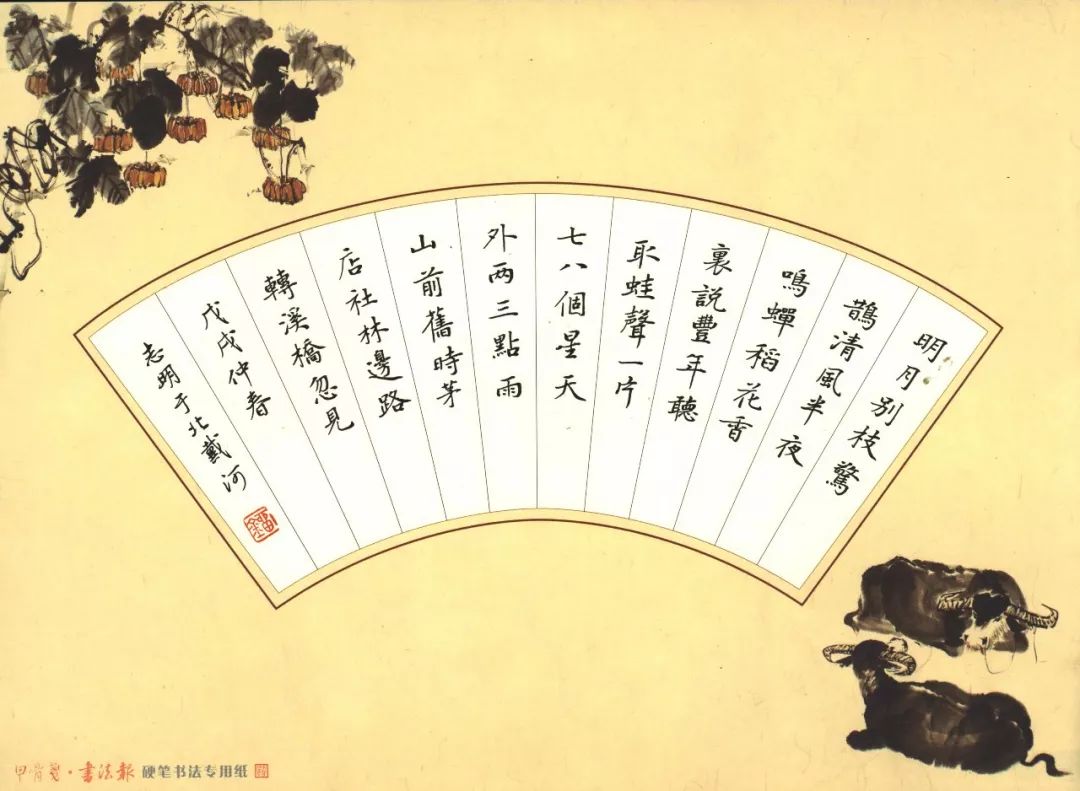 明月别枝驚
鵲清風半夜
鳴蟬稻花香
裏説豐年聽
取蛙聲一片
七八個星天
外两三點雨
山前舊時茅
店社林邊路
轉溪橋忽見
戊戌仲春
志明于北戴河
書法報 硬笔书法专用纸